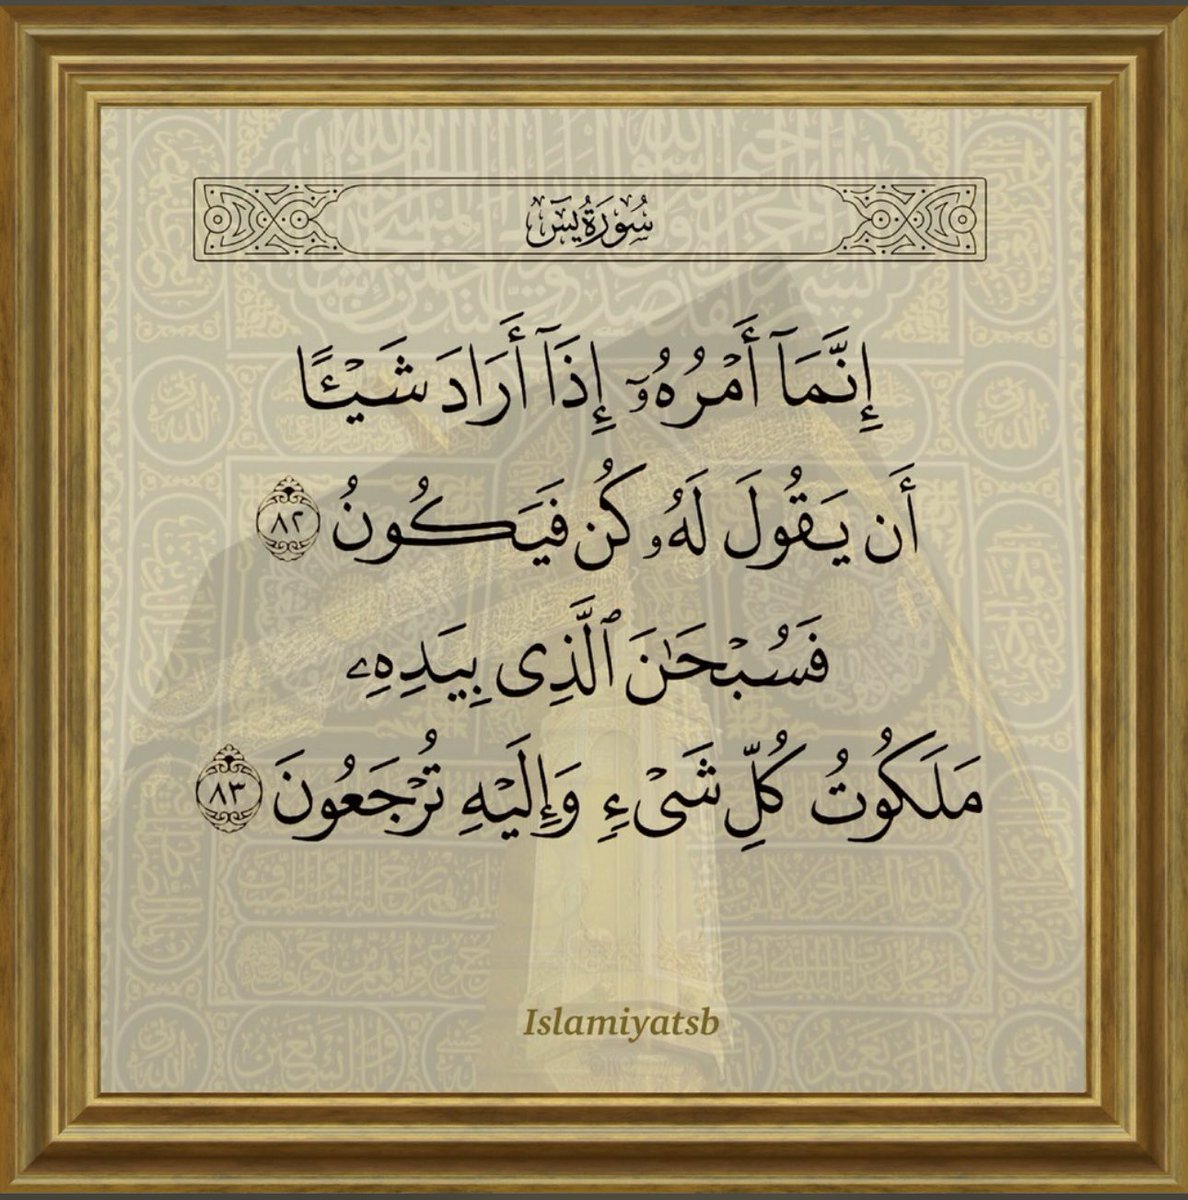 سُورَةُ يسٓ
إِنَّمَآ أَمْرُهُۥٓ إِذَآ أَرَادَ شَيْـًٔا
أَن يَقُولَ لَهُۥ كُن فَيَكُونُ ٨٢
فَسُبْحَـٰنَ ٱلَّذِى بِيَدِهِۦ
مَلَكُوتُ كُلِّ شَىْءٍ وَإِلَيْهِ تُرْجَعُونَ ٨٣
Islamiyatsb